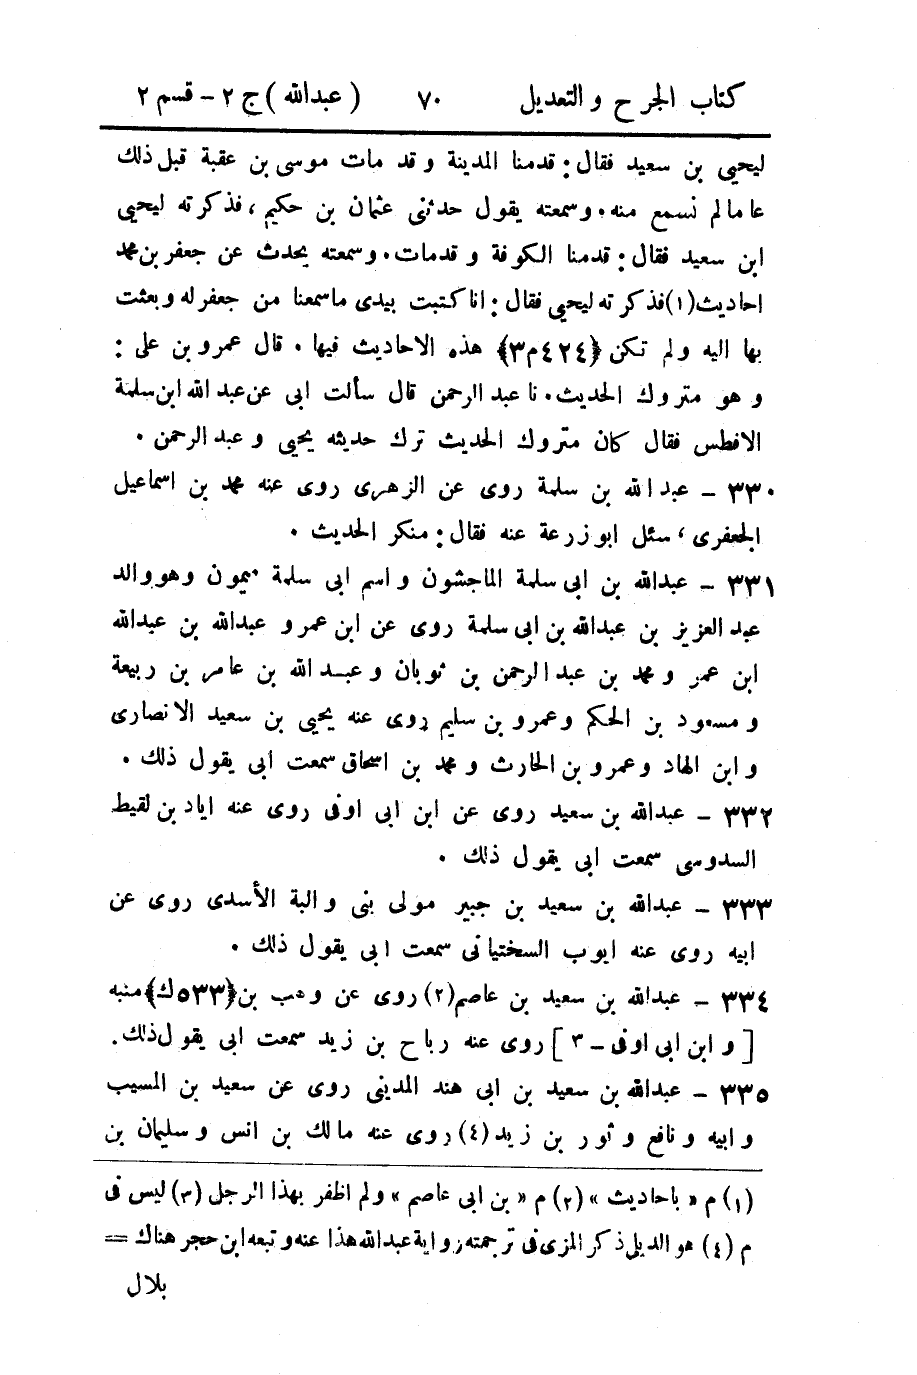 كتاب الجرح والتعديل ٧٠ (عبدالله) ج ٢ – قسم ٢
ليحيى بن سعيد فقال: قدمنا المدينة وقد مات موسى بن عقبة قبل ذلك
عاما لم نسمع منه. وسمعته يقول حدثنى عثمان بن حكيم، فذكرته ليحيى
ابن سعيد فقال: قدمنا الكوفة وقدمات. وسمعته يحدث عن جعفر بن محمد
احاديث (١) فذكرته ليحيى فقال: انا كتبت بيدى ما سمعنا من جعفر له وبعثت
بها اليه ولم تكن ﴿٤٢٤م٣﴾ هذه الاحاديث فيها. قال عمرو بن على:
وهو متروك الحديث. نا عبد الرحمن قال سألت ابى عن عبد الله ابن سلمة
الافطس فقال كان متروك الحديث ترك حديثه يحيى وعبد الرحمن.
٣٣٠ – عبد الله بن سلمة روى عن الزهرى روى عنه محمد بن اسماعيل
الجعفرى، سئل ابو زرعة عنه فقال: منكر الحديث.
٣٣١ – عبدالله بن ابى سلمة الماجشون واسم ابى سلمة ميمون وهو والد
عبد العزيز بن عبدالله بن ابى سلمة روى عن ابن عمر وعبدالله بن عبدالله
ابن عمر ومحمد بن عبد الرحمن بن ثوبان وعبد الله بن عامر بن ربيعة
ومسعود بن الحكم وعمرو بن سليم روى عنه يحيى بن سعيد الانصارى
وابن الهاد وعمرو بن الحارث ومحمد بن اسحاق سمعت ابى يقول ذلك.
٣٣٢ – عبدالله بن سعيد روى عن ابن ابى اوفى روى عنه اياد بن لقيط
السدوسى سمعت ابى يقول ذلك.
٣٣٣ – عبدالله بن سعيد بن جبير مولى بنى والبة الأسدى روى عن
ابيه روى عنه ايوب السختيانى سمعت ابى يقول ذلك.
٣٣٤ – عبدالله بن سعيد بن عاصم (٢) روى عن وهب بن ﴿٥٣٣ك﴾ منبه
[وابن ابى اوفى – ٣] روى عنه رباح بن زيد سمعت ابى يقول ذلك.
٣٣٥ – عبدالله بن سعيد بن ابى هند المدينى روى عن سعيد بن المسيب
وابيه ونافع وثور بن زيد (٤) روى عنه مالك بن انس وسليمان بن
(١) م « باحاديث » (٢) م « بن ابى عاصم » ولم اظفر بهذا الرجل (٣) ليس فى
م (٤) هو الديلى ذكر المزى فى ترجمته رواية عبدالله هذا عنه وتبعه ابن حجر هناك =
بلال